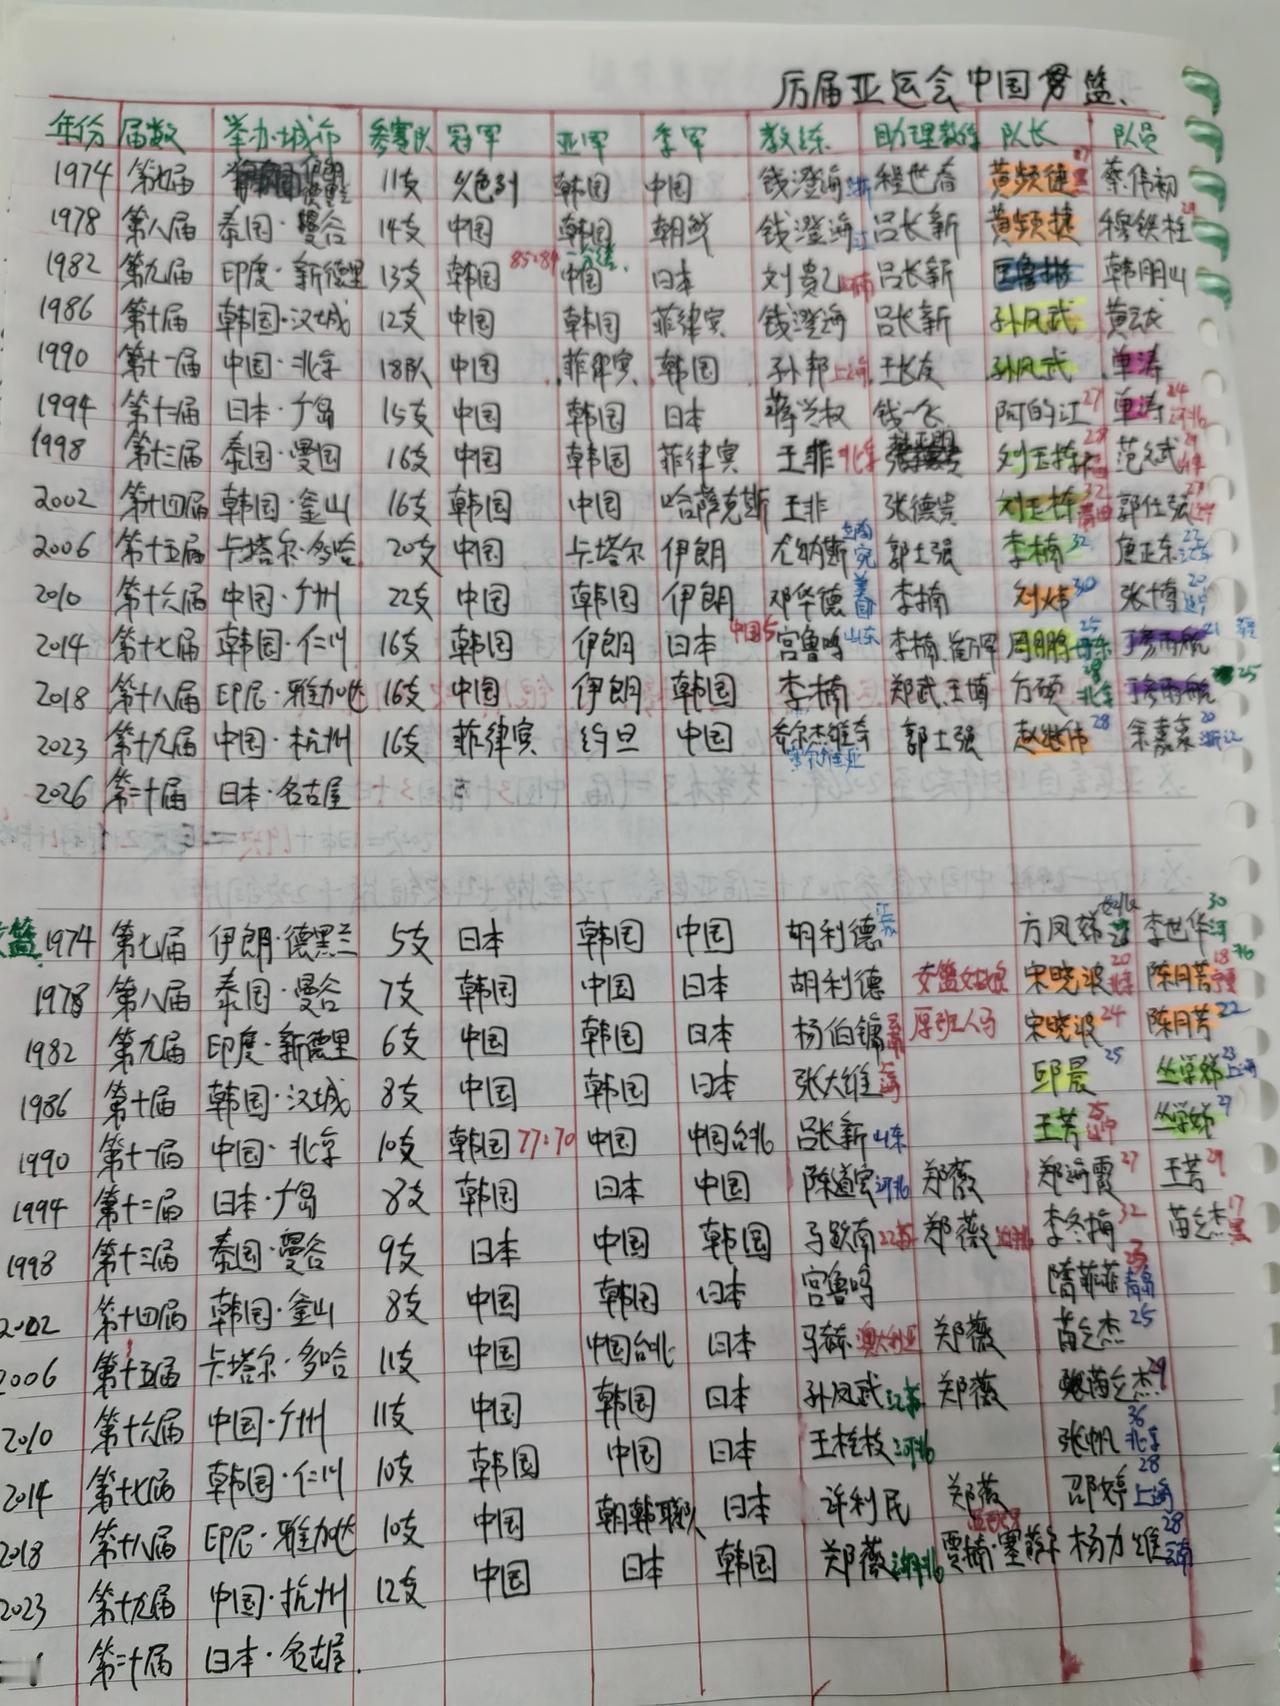 历届亚运会中国男篮、
年份 届数 举办城市 参赛队 冠军 亚军 季军 教练 助理教练 队长 队员
1974 第七届 11支 以色列 韩国 中国 钱澄海 程世春 黄频捷 蔡伟初
1978 第八届 泰国·曼谷 14支 中国 韩国 朝鲜 钱澄海 吕长新 黄频捷 穆铁柱
1982 第九届 印度·新德里 13支 韩国 85:84 一分结 中国 日本 刘贵乙 吕长新 匡鲁彬 韩朋山
1986 第十届 韩国·汉城 12支 中国 韩国 菲律宾 钱澄海 吕长新 孙凤武 黄云龙
1990 第十一届 中国·北京 18队 中国 菲律宾 韩国 孙邦 上海 王长友 孙凤武 单涛
1994 第十二届 日本·广岛 15支 中国 韩国 日本 蒋兴权 钱一飞 阿的江 27 单涛 24 河北
1998 第十三届 泰国·曼国 16支 中国 韩国 菲律宾 王菲 北京 刘玉栋 28 范文武 29
2002 第十四届 韩国·釜山 16支 韩国 中国 哈萨克斯 王非 张德贵 刘玉栋 32 郭仕强 27 辽宁
2006 第十五届 卡塔尔·多哈 20支 中国 卡塔尔 伊朗 尤纳斯 立陶宛 郭士强 李楠 32 唐正东 22 江苏
2010 第十六届 中国·广州 22支 中国 韩国 伊朗 邓华德 美国 李楠 刘炜 30 张博 20 辽宁
2014 第十七届 韩国·仁川 16支 韩国 伊朗 日本 中国5 宫鲁鸣 山东 李楠、崔万军 周鹏 25 丹东 丁彦雨航 21
2018 第十八届 印尼·雅加达 16支 中国 伊朗 韩国 李楠 郑武、王博 方硕 28 北京 丁彦雨航 25
2023 第十九届 中国·杭州 16支 菲律宾 约旦 中国 乔尔杰维奇 塞尔维亚 郭士强 赵继伟 28 余嘉豪 20 浙江
2026 第二十届 日本·名古屋
篮 1974 第七届 伊朗·德黑兰 5支 日本 韩国 中国 胡利德 江苏 方凤娣 李世华 30 河
1978 第八届 泰国·曼谷 7支 韩国 中国 日本 胡利德 女篮女姑娘 宋晓波 20 北京 陈月芳 18 76
1982 第九届 印度·新德里 6支 中国 韩国 日本 杨伯镛 原班人马 宋晓波 24 陈月芳 22
1986 第十届 韩国·汉城 8支 中国 韩国 日本 张大维 上海 邱晨 25 丛学娣 23 上海
1990 第十一届 中国·北京 10支 韩国 77:70 中国 中国台北 吕长新 山东 王芳 25 辽宁 丛学娣 27
1994 第十二届 日本·广岛 8支 韩国 日本 中国 陈道宏 河北 郑薇 郑海霞 27 王芳 29
1998 第十三届 泰国·曼谷 9支 日本 中国 韩国 马跃南 江苏 郑薇 湖北 李冬梅 32 苗立杰 17 黑
2002 第十四届 韩国·釜山 8支 中国 韩国 日本 宫鲁鸣 隋菲菲 23 青岛
2006 第十五届 卡塔尔·多哈 11支 中国 中国台北 日本 马赫 澳大利亚 郑薇 苗立杰 25
2010 第十六届 中国·广州 11支 中国 韩国 日本 孙凤武 江苏 郑薇 苗立杰 29
2014 第十七届 韩国·仁川 10支 韩国 中国 日本 王桂枝 河北 张帆 36 北京
2018 第十八届 印尼·雅加达 10支 中国 朝韩联队 日本 许利民 郑薇 邵婷 28 上海
2023 第十九届 中国·杭州 12支 中国 日本 韩国 郑薇 湖北 贾楠·塞薛年 杨力维 28 云南
第二十届 日本·名古屋.